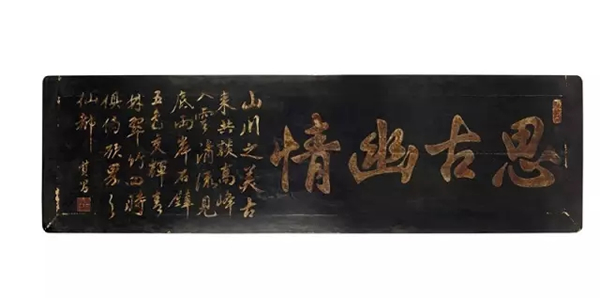 思古幽情
山川之美古
來共談高峰
入雲清流見
底兩岸石壁
五色交輝青
林翠竹四時
俱備欲界之
仙都 其昌